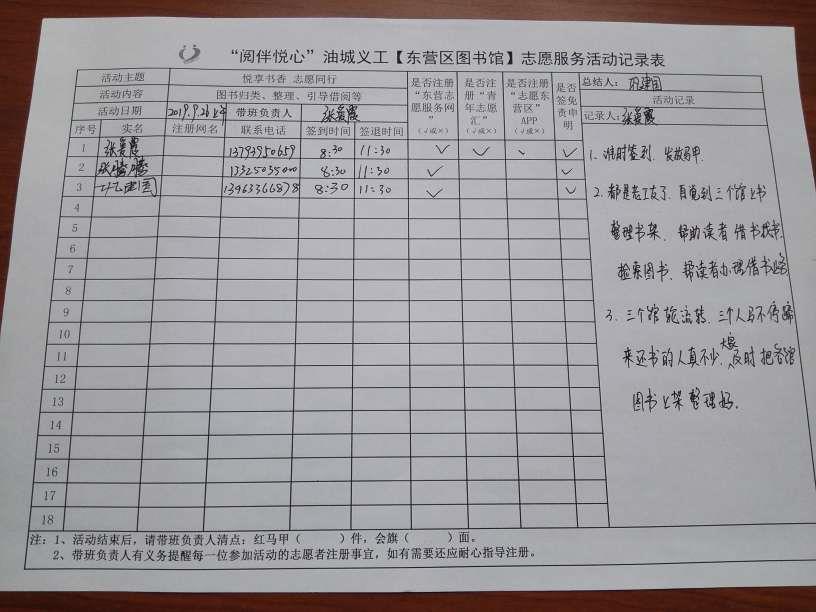 “阅伴悦心”油城义工【东营区图书馆】志愿服务活动记录表
活动主题 悦享书香 志愿同行 是否注册“东营志愿服务网”（√或×） 是否注册“青年志愿汇”（√或×） 是否注册“志愿东营区”APP（√或×） 是否签免责申明 总结人：
活动内容 图书归类、整理、引导借阅等 活动记录
活动日期 2019.9.26上午 带班负责人 张爱霞 记录人：张爱霞
序号 实名 注册网名 联系电话 签到时间 签退时间
1 张爱霞 13793950659 8:30 11:30 √ √ √
2 8:30 11:30 √ √
3 13963366878 8:30 11:30 √ √
4
5
6
7
8
9
10
11
12
13
14
15
16
17
18
1、准时签到、发放马甲.
2、都是老义工了、自觉到三个馆上书
整理书架、帮助读者借书找书、
检索图书、帮读者办理借书业务
3、三个馆轮流转、三个人马不停蹄
来还书的人真不少、大家及时把各馆
图书上架整理好.
注：1、活动结束后，请带班负责人清点：红马甲（ ）件，会旗（ ）面。
2、带班负责人有义务提醒每一位参加活动的志愿者注册事宜，如有需要还应耐心指导注册。